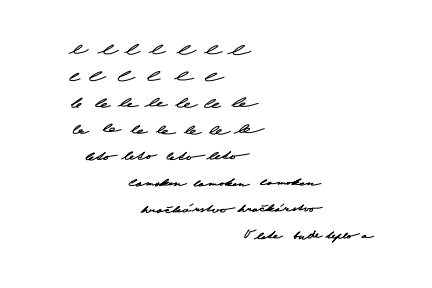 e e e e e e e
e e e e e e
le le le le le le le
le le le le le le le
leto leto leto leto
lamoken lamoken lamoken
hračkárstvo hračkárstvo
V lete bude teplo a